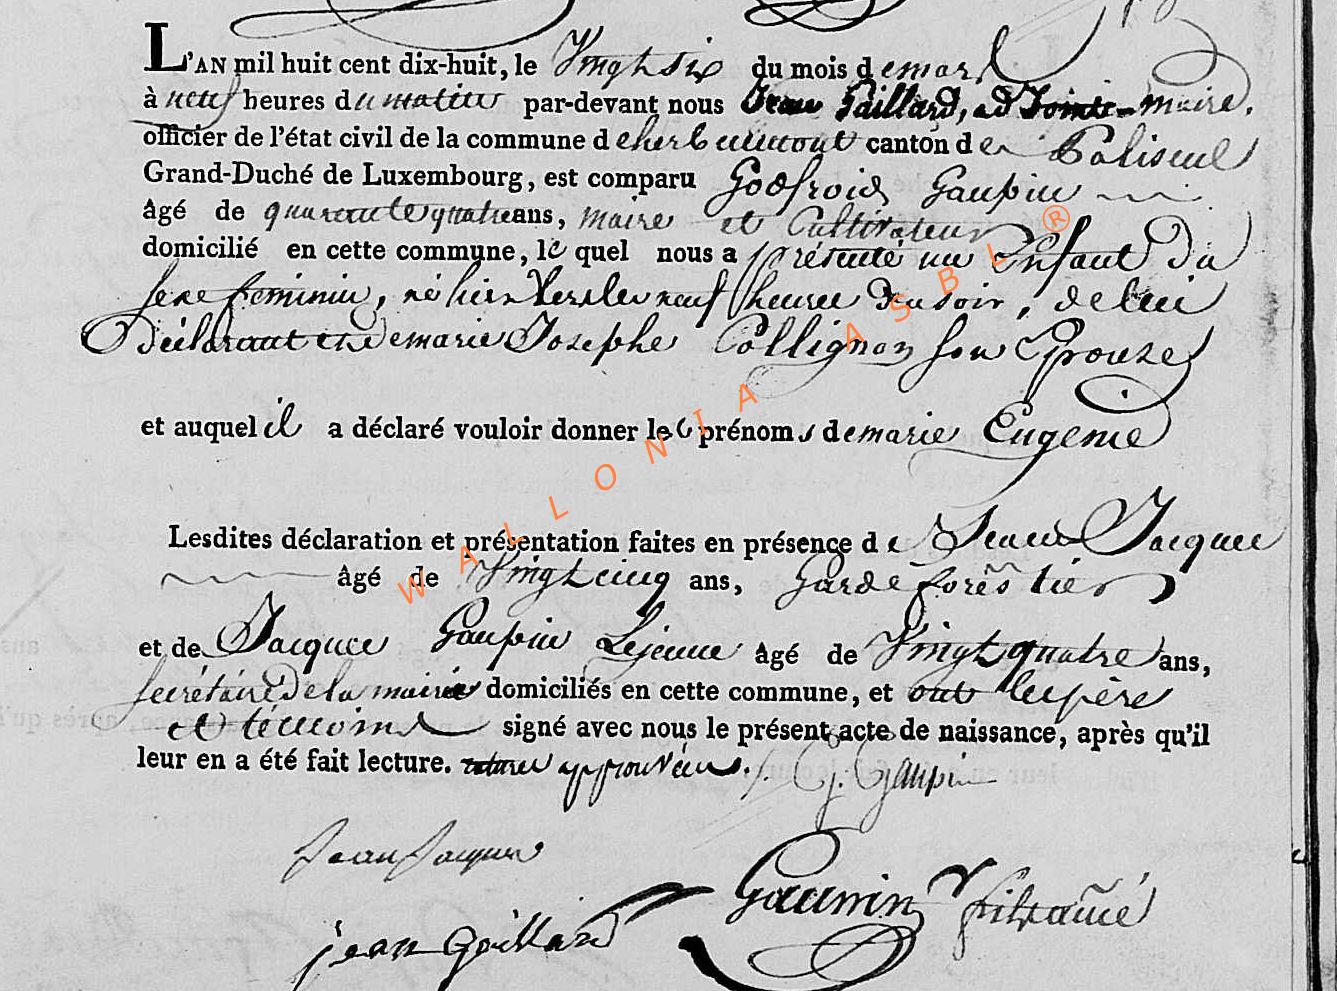 L'AN mil huit cent dix-huit, le Vingt Six du mois de mars
à neuf heures du matin par-devant nous Jean Gaillard, adJointe-maire,
officier de l'état civil de la commune d'herbeumont canton de Paliseul
Grand-Duché de Luxembourg, est comparu Godfroid Gaupin
âgé de quarante quatre ans, maire et Cultivateur
domicilié en cette commune, le quel nous a présenté un Enfant du
sexe féminin, né hier vers les neuf heures du soir, de lui
Déclarant et de marie Josephe Collignon son Epouse
et auquel il a déclaré vouloir donner les prénoms de marie Eugenie
Lesdites déclaration et présentation faites en présence de Jean Jacques
âgé de Vingt cinq ans, Garde forêstier
et de Jacques Gaupin Lejeune âgé de Vingt quatre ans,
secrétaire de la mairie domiciliés en cette commune, et ont les père
et témoins signé avec nous le présent acte de naissance, après qu'il
leur en a été fait lecture. approuvées. G. Gaupin
Jean Jacques
Gaupin fils ainé
jean Gaillard
WALLONIA ASBL ®